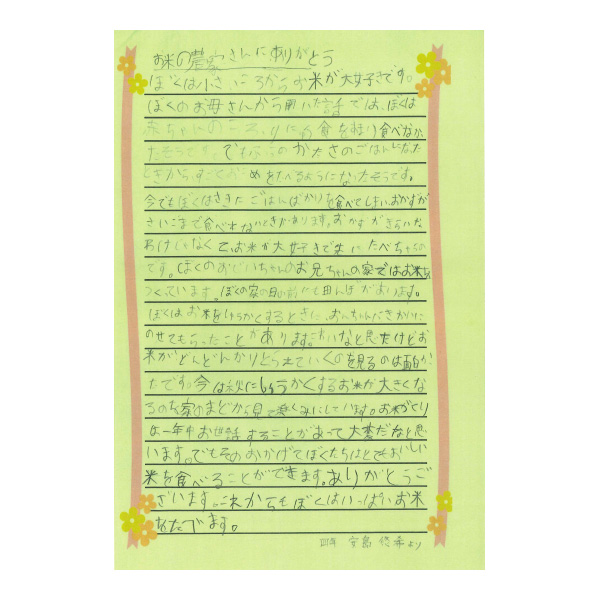 お米の農家さんにありがとう
ぼくは小さいころからお米が大好きです。
ぼくのお母さんから聞いた話では、ぼくは
赤ちゃんのころ、りにゅう食をあまり食べなか
たそうです。でもふつうのかたさのごはんになた
ときから、すごくおこめをたべるようになったそうです。
今でもぼくはさきにごはんばかりを食べてしまいおかずが
さいごまで食べれないときがあります。おかずがきらいな
わけじゃなくて、お米が大好きで先にたべちゃうの
です。ぼくのおじいちゃんのお兄ちゃんの家ではお米を
つくっています。ぼくの家の目の前にも田んぼがあります。
ぼくはお米をしゅうかくするときに、おじちゃんにきかいに
のせてもらったことがあります。こわいなと思たけどお
米がどんどんかりとられていくのを見るのは面白か
たです。今は秋にしゅうかくするお米が大きくな
るのを家のまどから見て楽しみにしています。お米づくり
は一年中お世話することがあって大変だなと思
います。でもそのおかげでぼくたちはとてもおいしい
米を食べることができます。ありがとうご
ざいます。これからもぼくはいっぱいお米
をたべます。
四年 安島 悠希より